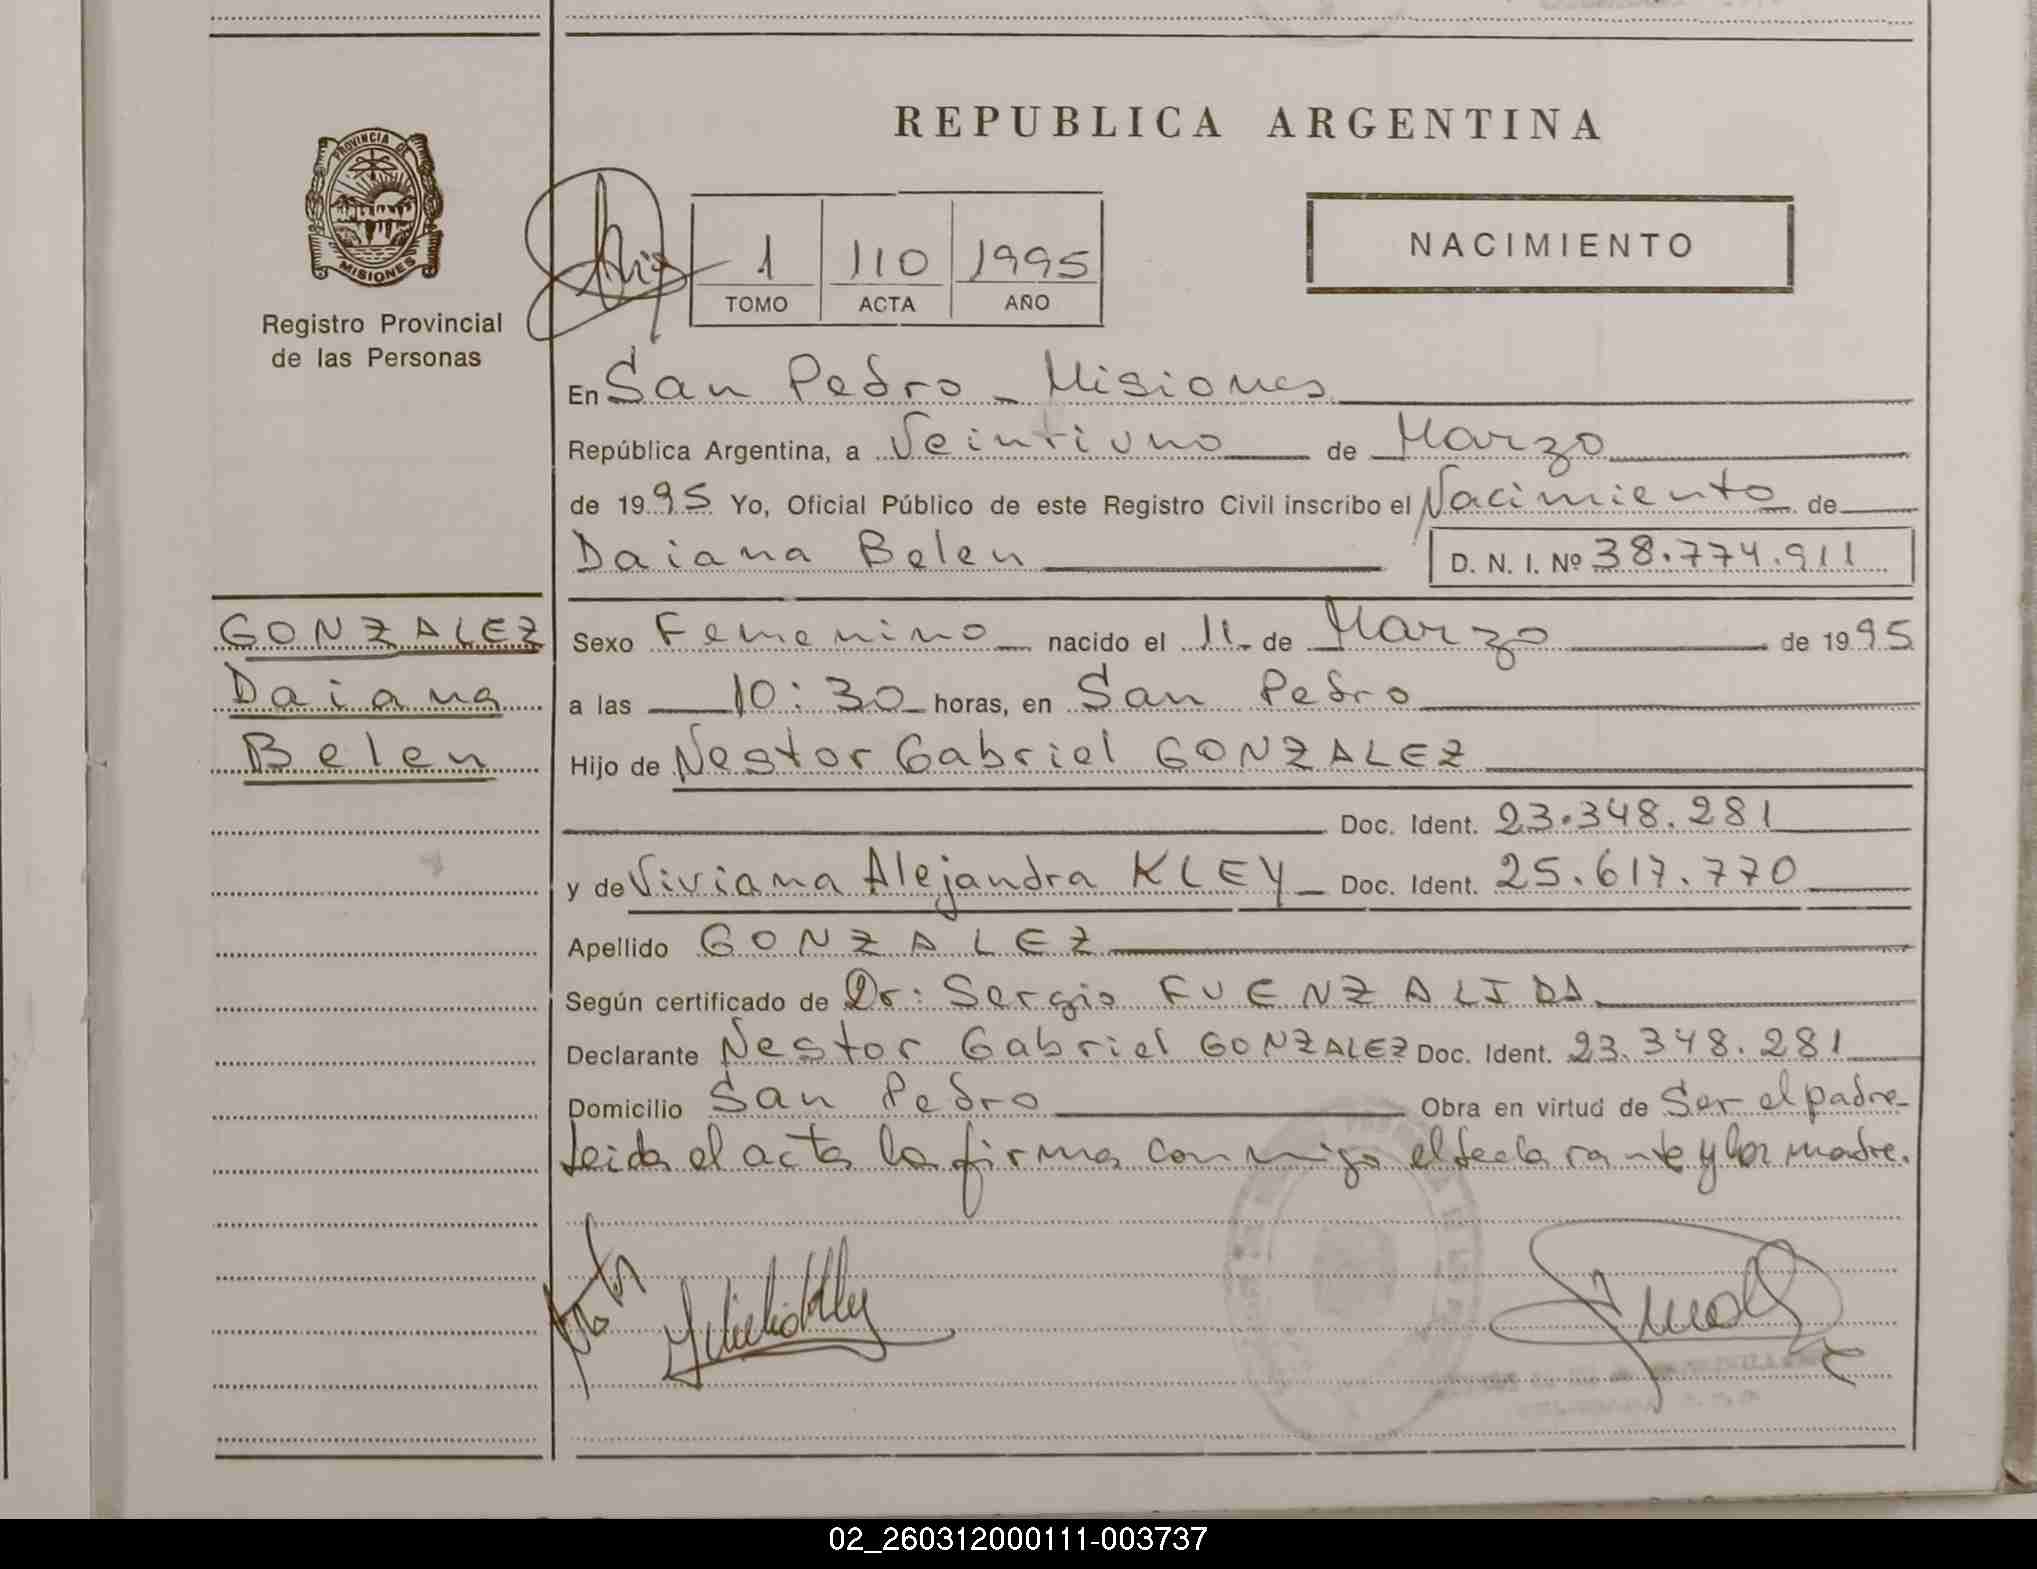 REPUBLICA ARGENTINA
PROVINCIA DE
MISIONES
Registro Provincial
de las Personas
1 110 1995
TOMO ACTA AÑO
NACIMIENTO
En San Pedro - Misiones
República Argentina, a Veintiuno de Marzo
de 1995 Yo, Oficial Público de este Registro Civil inscribo el Nacimiento de
Daiana Belen D. N. I. Nº 38.774.911
GONZALEZ
Daiana
Belen
Sexo Femenino nacido el 11 de Marzo de 1995
a las 10:30 horas, en San Pedro
Hijo de Nestor Gabriel GONZALEZ
Doc. Ident. 23.348.281
y de Viviana Alejandra KLEY Doc. Ident. 25.617.770
Apellido GONZALEZ
Según certificado de Dr: Sergio FUENZALIDA
Declarante Nestor Gabriel GONZALEZ Doc. Ident. 23.348.281
Domicilio San Pedro Obra en virtud de Ser el padre-
Leida el acta la firma conmigo el declarante y la madre.
02_260312000111-003737